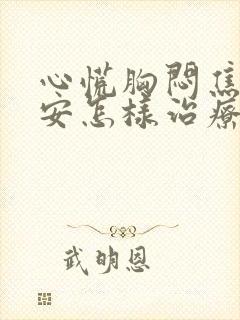 心慌胸闷焦
安怎样治疗
武明恩